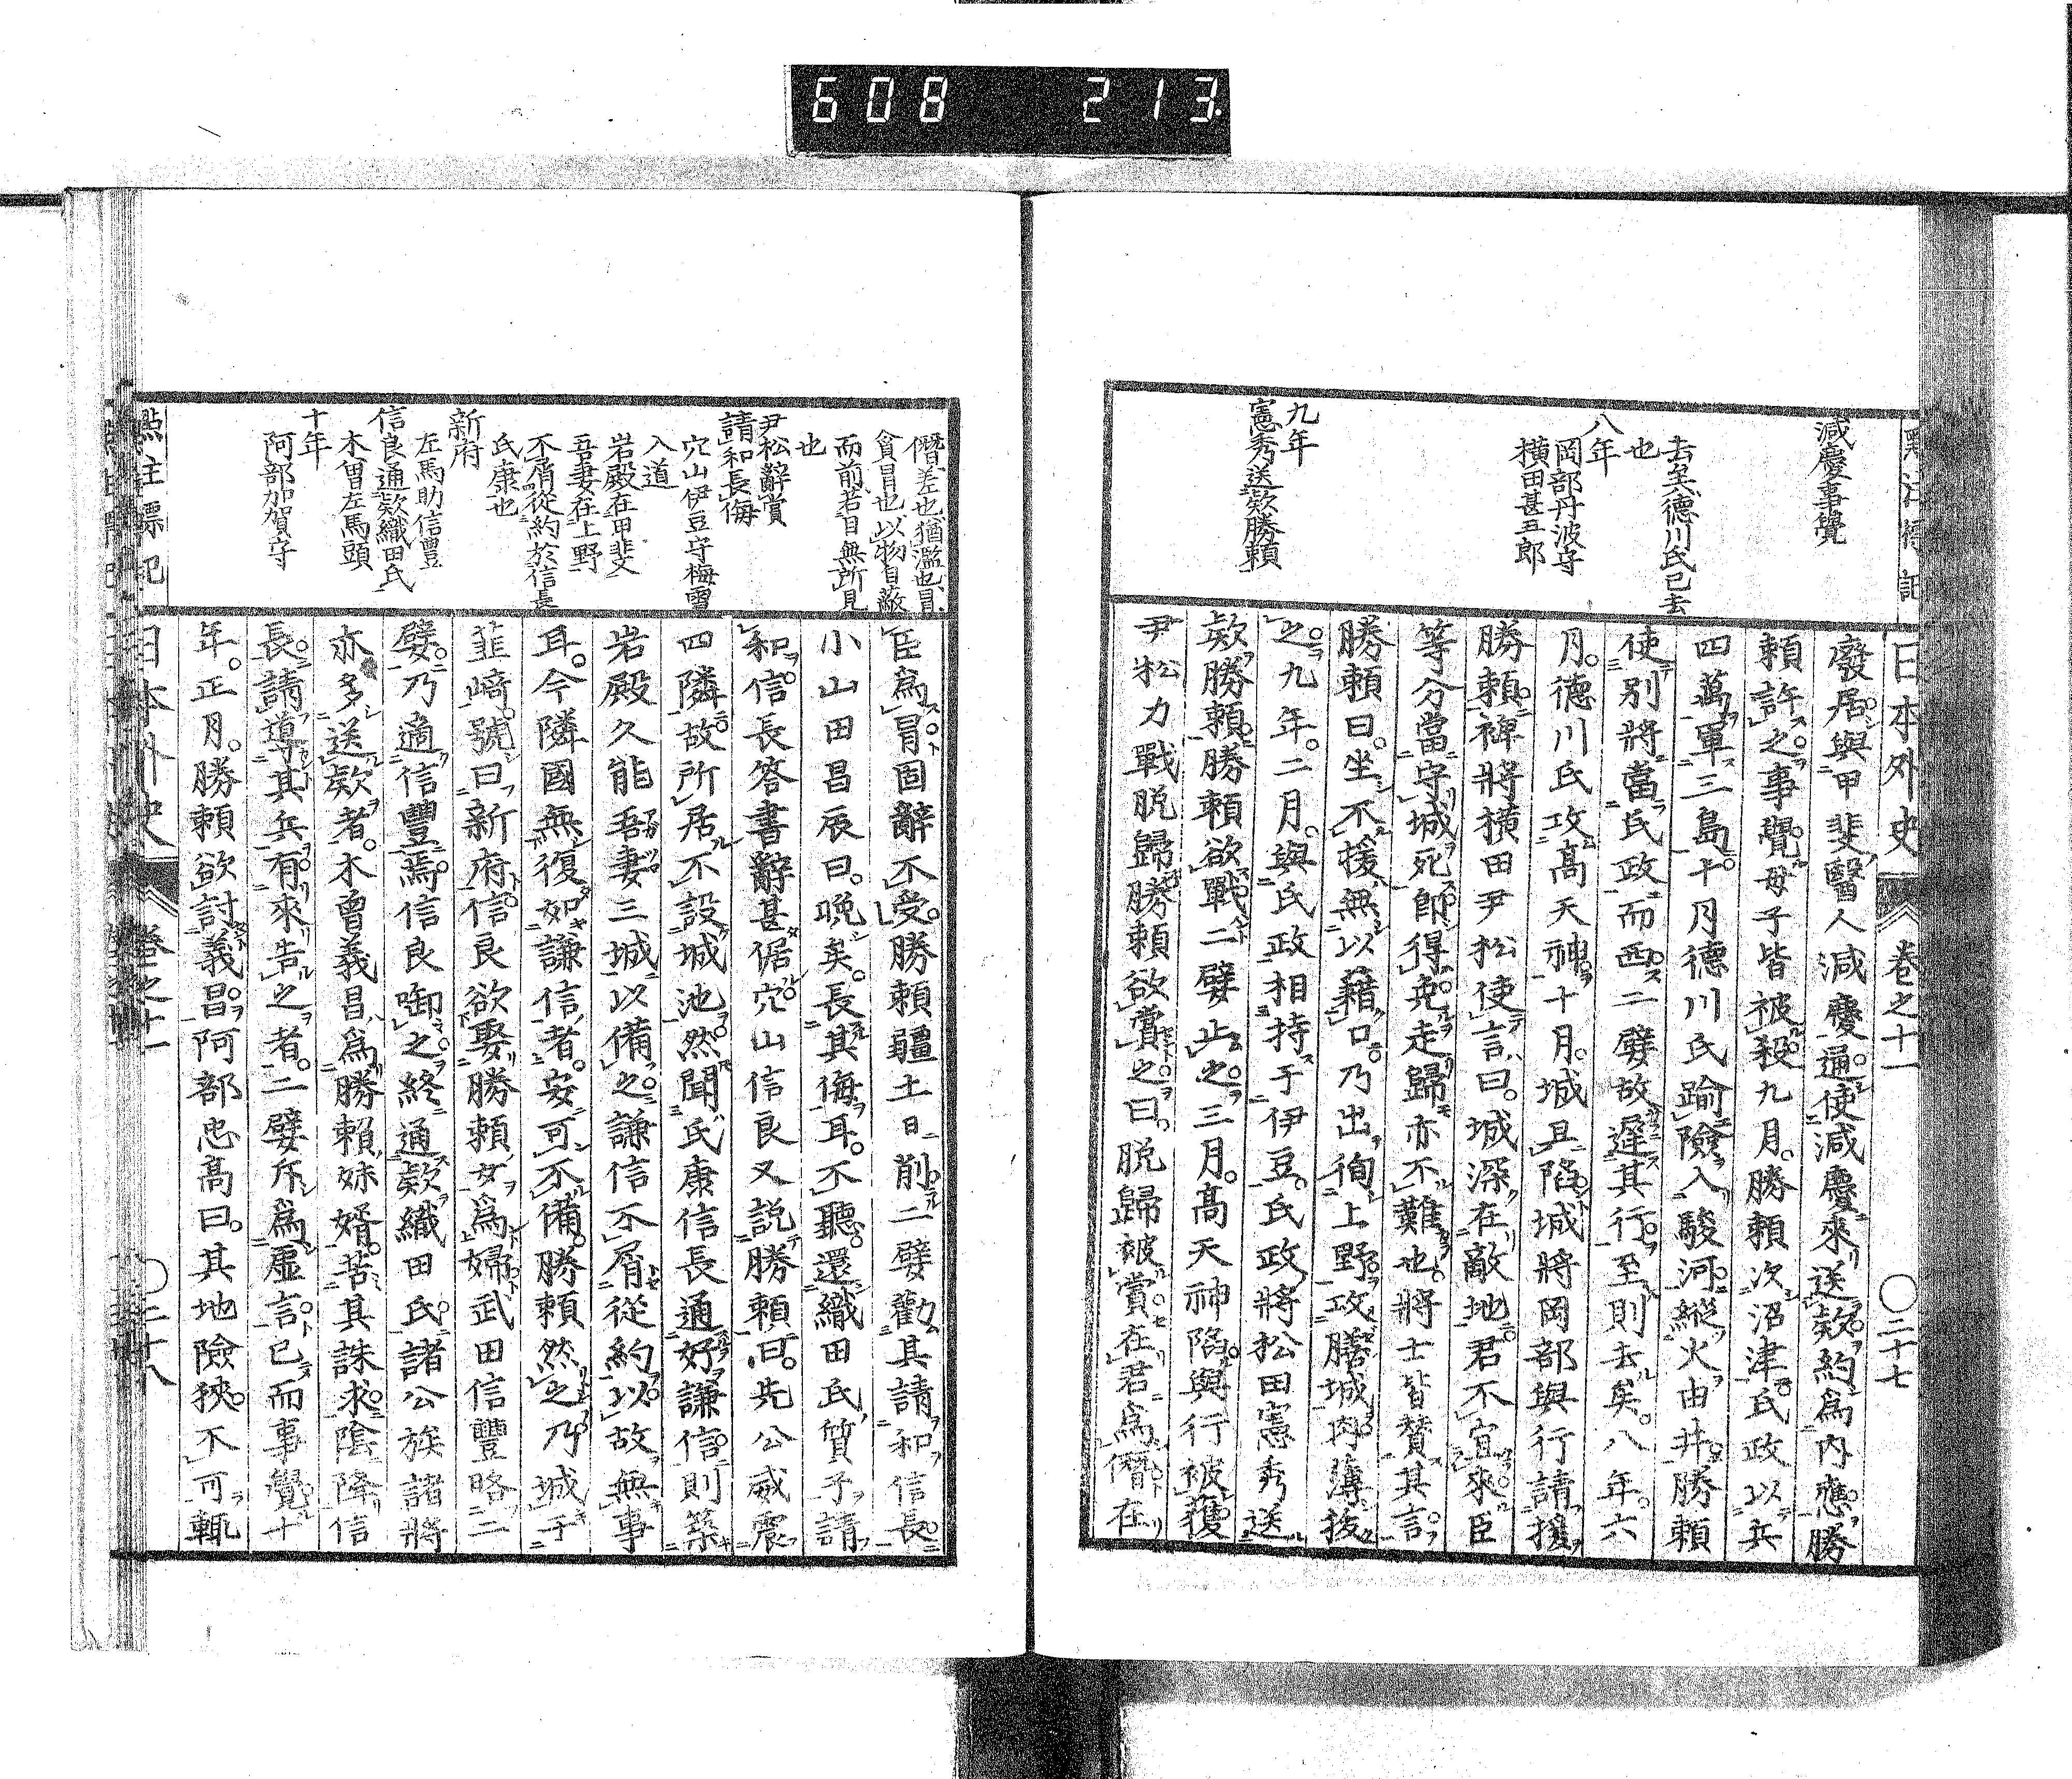 608 213
點注標記
減慶事覺
去矣德川氏已去
也
八年
岡部丹波守
橫田甚五郎
九年
憲秀送欵勝賴
日本外史 卷之十一 〇二十七
廢居與甲斐醫人減慶通使減慶來送欵約爲內應勝
賴許之事覺母子皆被殺九月勝賴次沼津氏政以兵
四萬軍三島十月德川氏踰險入駿河縱火由井勝賴
使別將當氏政而西二嬖故遲其行至則去矣八年六
月德川氏攻高天神十月城且陷城將岡部與行請援
勝賴裨將橫田尹松使言曰城深在敵地君不宜來臣
等分當守城死卽得免走歸亦不難也將士皆贊其言
勝賴曰坐不援無以藉口乃出徇上野攻膳城肉薄拔
之九年二月與氏政相持于伊豆氏政將松田憲秀送
欵勝賴勝賴欲戰二嬖止之三月高天神陷與行被獲
尹松力戰脫歸勝賴欲賞之曰脫歸被賞在君爲僭在
僭差也猶濫也冒
貪冒也以物自蔽
而前若目無所見
也
尹松辭賞
請和長侮
穴山伊豆守梅雪
入道
岩殿在甲斐
吾妻在上野
不屑從約於信長
氏康也
新府
左馬助信豐
信良通欵織田氏
木曾左馬頭
十年
阿部加賀守
臣爲冒固辭不受勝賴疆土日削二嬖勸其請和信長
小山田昌辰曰晚矣長其侮耳不聽還織田氏質子請
和信長答書辭甚倨穴山信良又說勝賴曰先公威震
四隣故所居不設城池然聞氏康信長通好謙信則築
岩殿久能吾妻三城以備之謙信不屑從約以故無事
耳今隣國無復如謙信者安可不備勝賴然之乃城于
韮﨑號曰新府信良欲娶勝賴女爲婦武田信豐略二
嬖乃適信豐焉信良啣之終通欵織田氏諸公族諸將
亦多送欵者木曾義昌爲勝賴妹婿苦其誅求陰降信
長請導其兵有來告之者二嬖斥爲虛言已而事覺十
年正月勝賴欲討義昌阿部忠高曰其地險狹不可輒
點注標記
日本外史 卷之十一 〇二十八